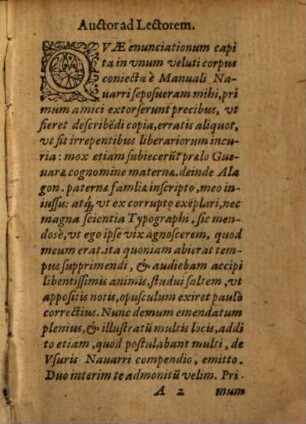 Auctor ad Lectorem.
QVÆ enunciationum capi
ta in vnum veluti corpus
coniecta è Manuali Na-
uarri seposueram mihi, pri
mum amici extorserunt precibus, vt
fieret describẽdi copia, erratis aliquot,
vt fit irrepentibus librariorum incu-
ria: mox etiam subiecerũt prælo Gue-
uaræ cognomine maternæ. deinde Ala
gon. paternæ familiæ inscripto, meo in
iussu: atq́, vt ex corrupto exẽplari, nec
magna scientia Typographi, sic men-
dosè, vt ego ipse vix agnoscerem, quod
meum erat. ita quoniam abierat tem-
pus supprimendi, & audiebam accipi
libentissimis animis, studui saltem, vt
appositis notis, opusculum exiret paulò
correctius. Nunc demum emendatum
plenius, & illustratũ multis locis, addi
to etiam, quod postulabant multi, de
Vsuris Nauarri compendio, emitto.
Duo interim te admonitũ velim. Pri-
A 2 mum